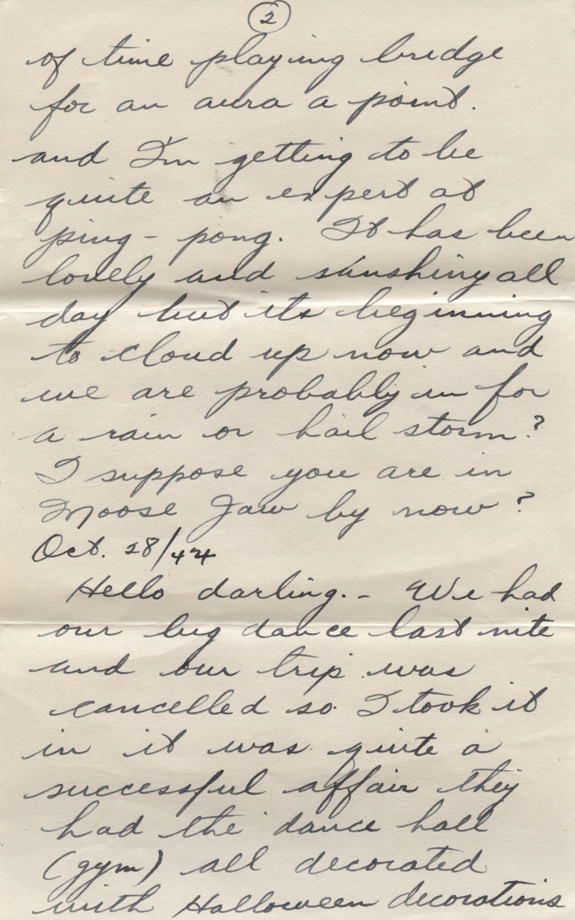 2
of time playing bridge
for an aura a point.
and I'm getting to be
quite an expert at
ping-pong. It has been
lovely and sunshiny all
day but its beginning
to cloud up now and
we are probably in for
a rain or hail storm?
I suppose you are in
Moose Jaw by now?
Oct. 28/44
Hello darling.- We had
our big dance last nite
and our trip was
cancelled so I took it
in it was quite a
successful affair they
had the dance hall
(gym) all decorated
with Halloween decorations